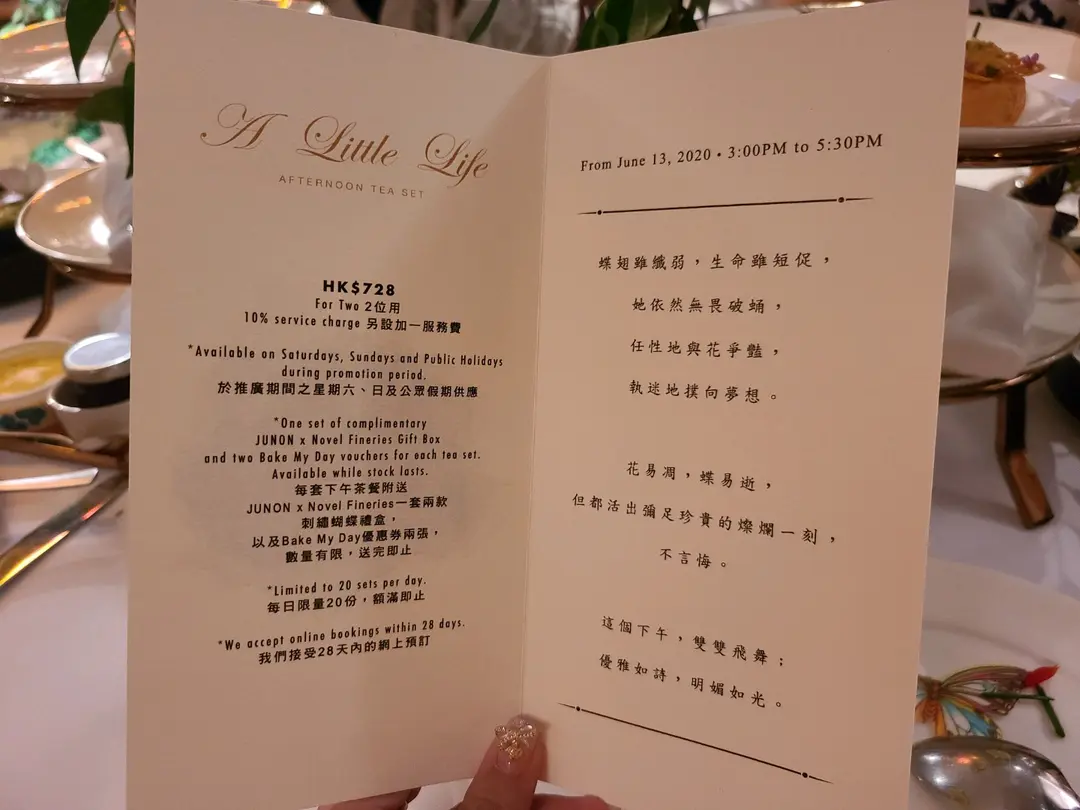 A Little Life
AFTERNOON TEA SET
HK$728
For Two 2位用
10% service charge 另設加一服務費
*Available on Saturdays, Sundays and Public Holidays
during promotion period.
於推廣期間之星期六、日及公眾假期供應
*One set of complimentary
JUNON x Novel Fineries Gift Box
and two Bake My Day vouchers for each tea set.
Available while stock lasts.
每套下午茶餐附送
JUNON x Novel Fineries一套兩款
刺繡蝴蝶禮盒，
以及Bake My Day優惠券兩張，
數量有限，送完即止
*Limited to 20 sets per day.
每日限量20份，額滿即止
*We accept online bookings within 28 days.
我們接受28天內的網上預訂
From June 13, 2020 • 3:00PM to 5:30PM
蝶翅雖纖弱，生命雖短促，
她依然無畏破蛹，
任性地與花爭豔，
執迷地撲向夢想。
花易凋，蝶易逝，
但都活出彌足珍貴的燦爛一刻，
不言悔。
這個下午，雙雙飛舞；
優雅如詩，明媚如光。